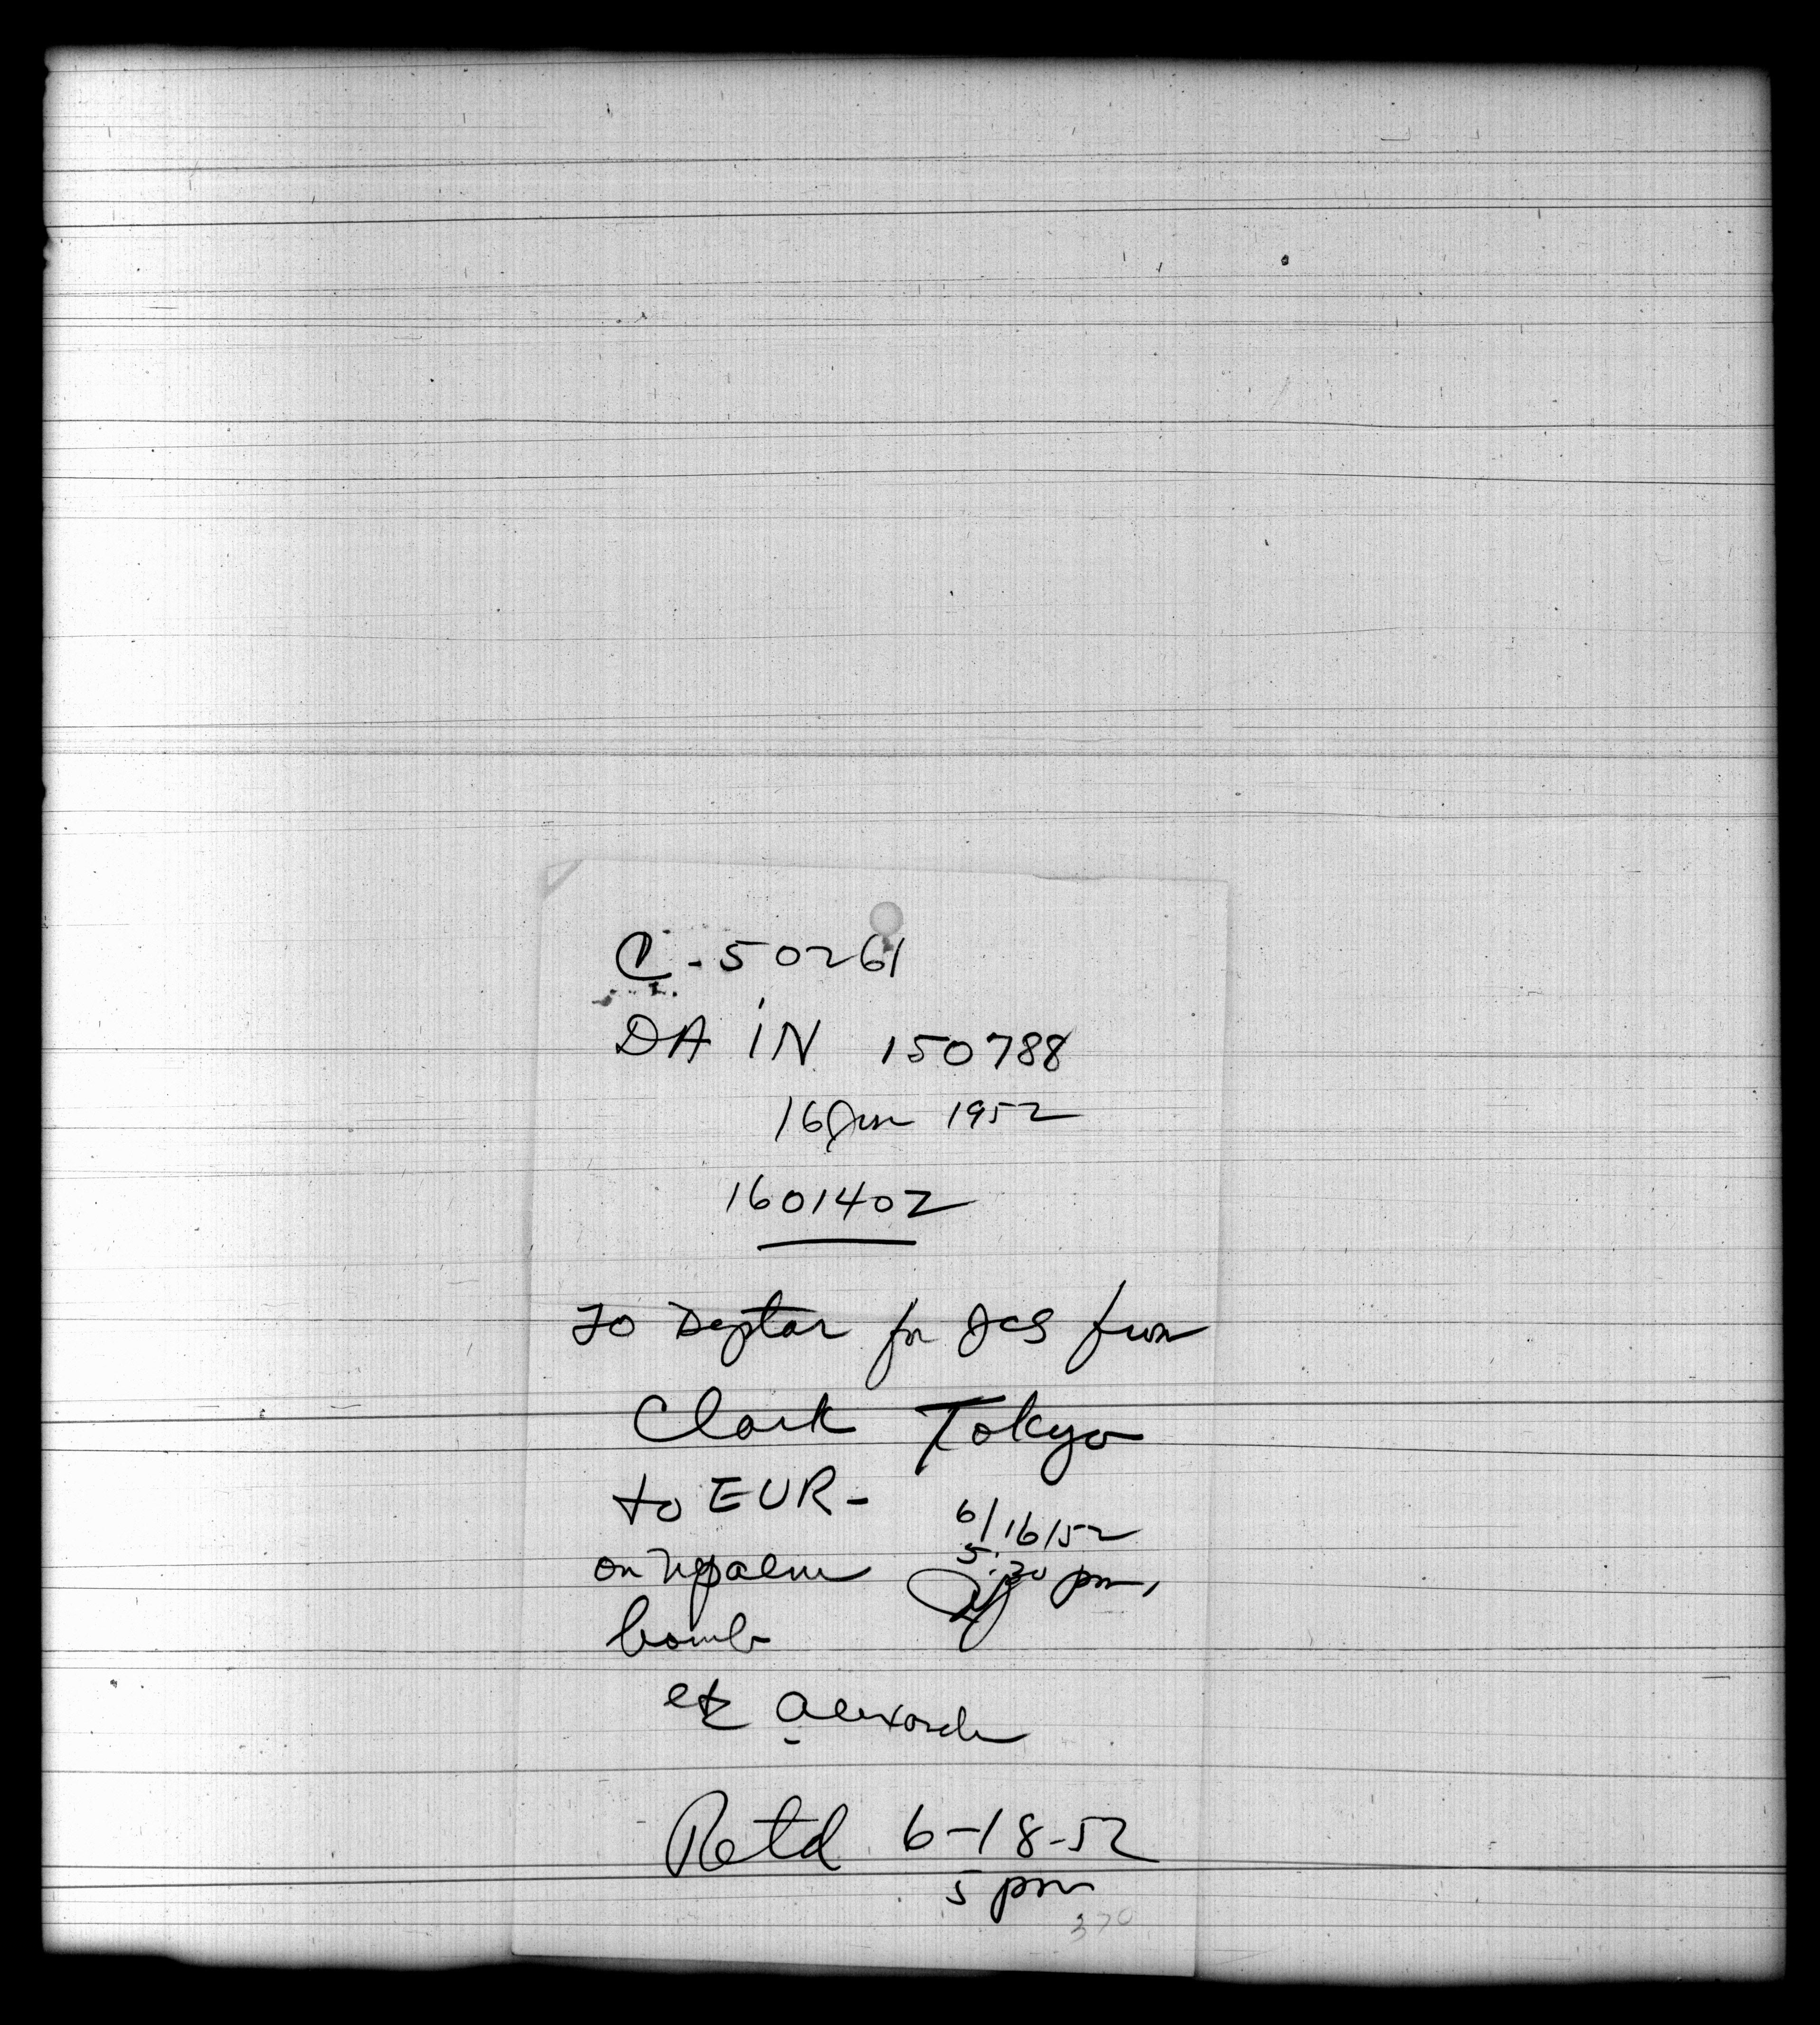 C-50261
DA IN 150788
16 Jun 1952
160140Z
To Deptar for JCS from
Clark Tokyo
to EUR-
6/16/52
5:30 pm,
on napalm
bomb
etc
Retd 6-18-52
5 pm
370